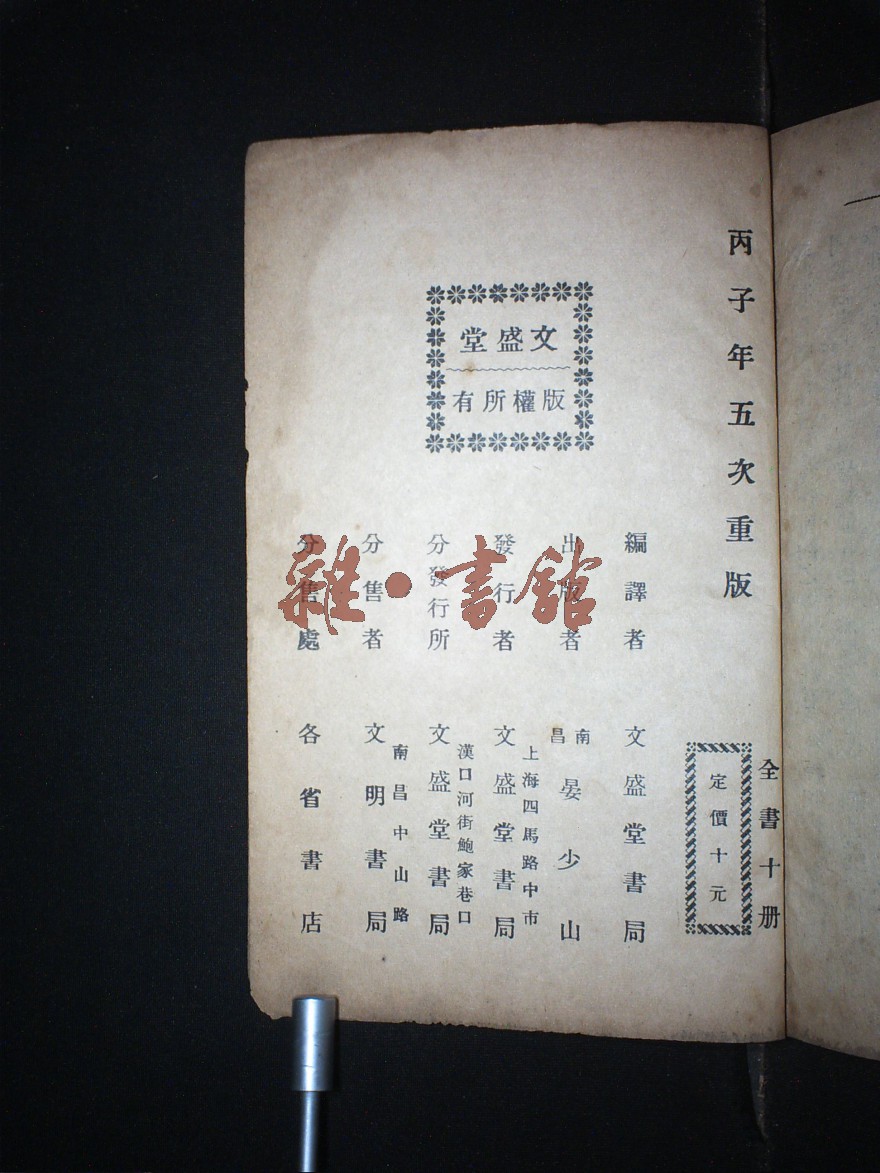 丙子年五次重版
全書十册
定價十元
文盛堂
版權所有
編譯者 文盛堂書局
出版者 南昌 晏少山
發行者 上海四馬路中市 文盛堂書局
分發行所 漢口河街鮑家巷口 文盛堂書局
分售者 南昌中山路 文明書局
分售處 各省書店
雜·書館